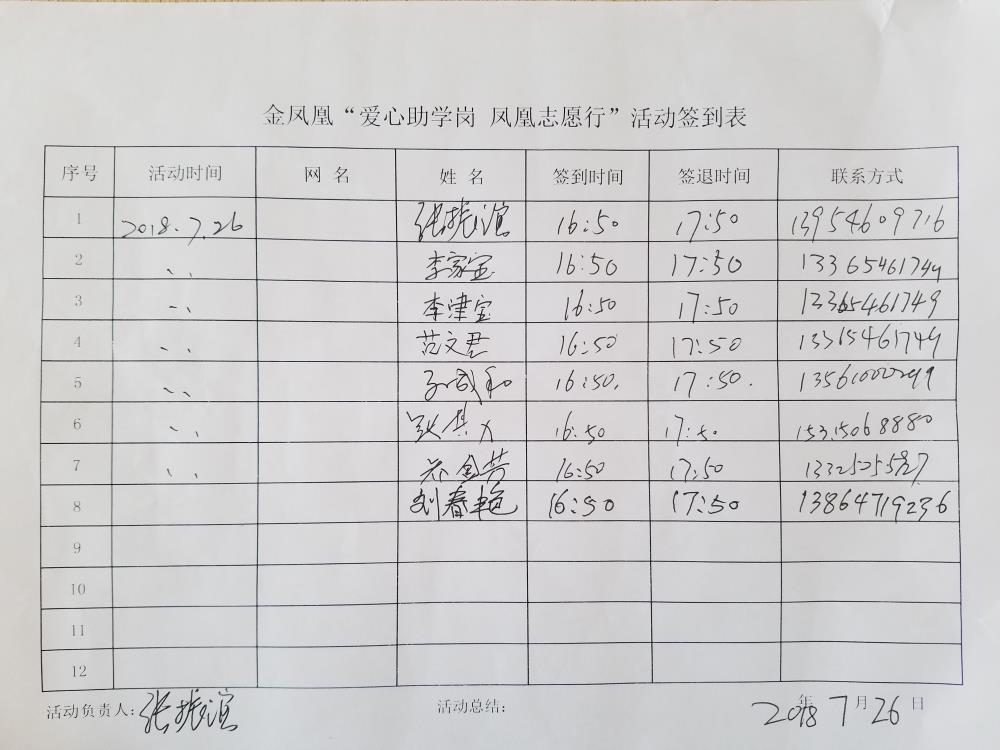 金凤凰“爱心助学岗 凤凰志愿行”活动签到表
序号 活动时间 网 名 姓 名 签到时间 签退时间 联系方式
1 2018.7.26 张振谊 16:50 17:50 13954609716
2 〃 李家宝 16:50 17:50 13365461749
3 〃 李津宝 16:50 17:50 13365461749
4 〃 范文君 16:50 17:50 13365461749
5 〃 16:50. 17:50.
6 〃 16:50 17:50 15315068880
7 〃 16:50 17:50
8 刘春艳 16:50 17:50 13864719236
9
10
11
12
活动负责人: 张振谊 活动总结: 2018 年 7 月 26 日